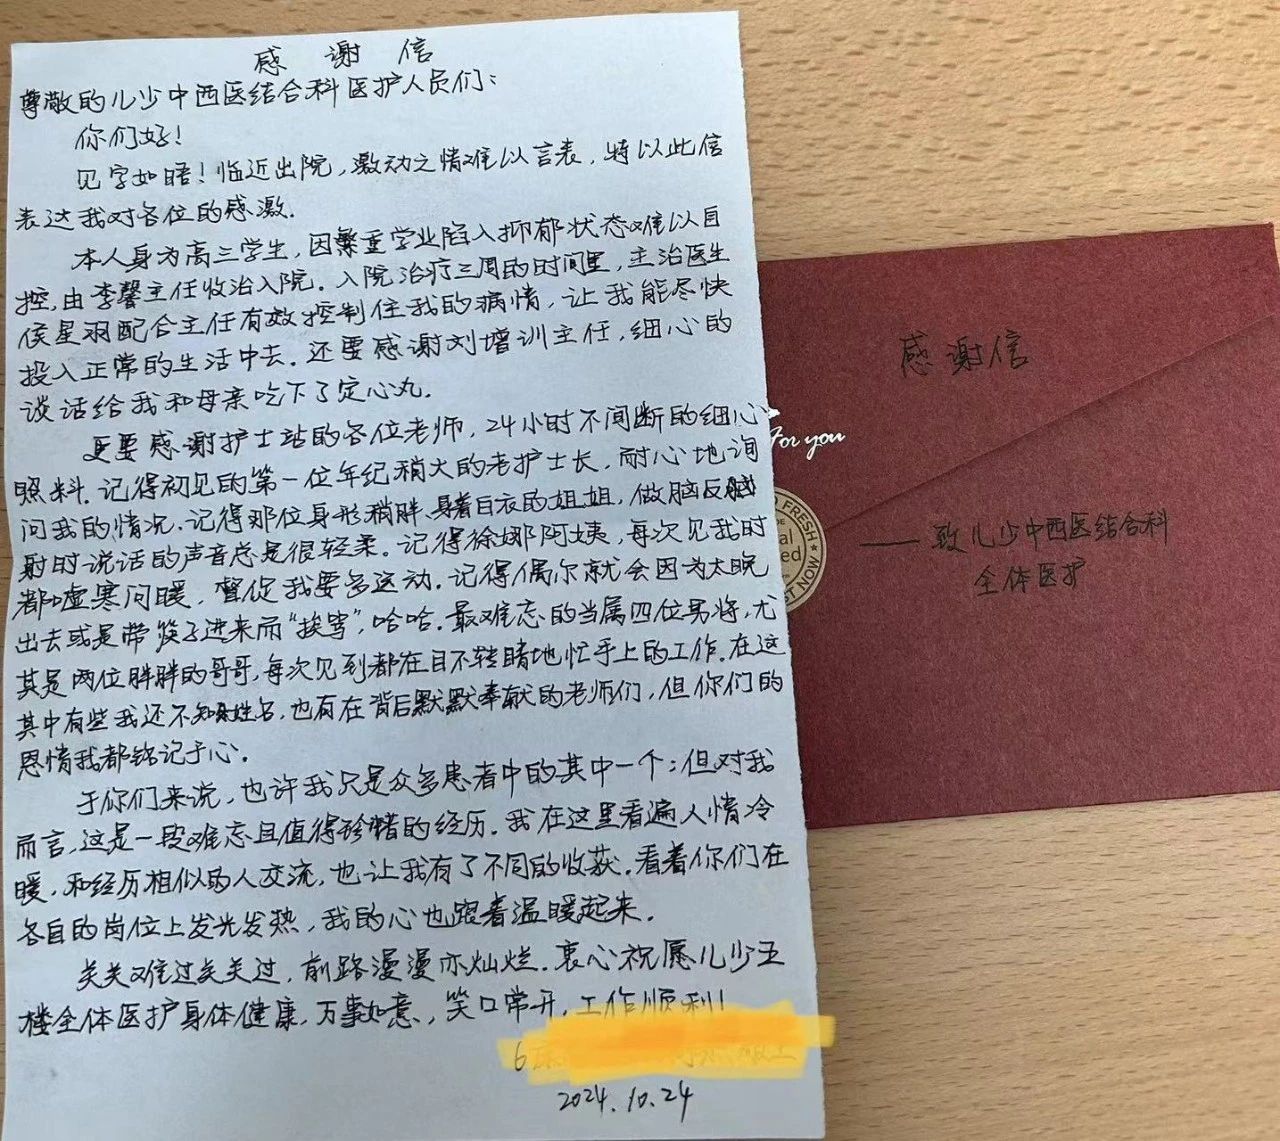 感谢信
尊敬的儿少中西医结合科医护人员们：
你们好！
见字如晤！临近出院，激动之情难以言表，特以此信
表达我对各位的感激.
本人身为高三学生，因繁重学业陷入抑郁状态难以自
控，由李馨主任收治入院.入院治疗三周的时间里，主治医生
侯星羽配合主任有效控制住我的病情，让我能尽快
投入正常的生活中去.还要感谢刘增训主任，细心的
谈话给我和母亲吃下了定心丸.
更要感谢护士站的各位老师，24小时不间断的细心
照料.记得初见的第一位年纪稍大的老护士长，耐心地询
问我的情况.记得那位身形稍胖、身着白衣的姐姐，做脑反
射时说话的声音总是很轻柔.记得徐娜阿姨，每次见我时
都嘘寒问暖，督促我要多运动.记得偶尔就会因为太晚
出去或是带筷子进来而“挨骂”，哈哈.最难忘的当属四位男将，尤
其是两位胖胖的哥哥，每次见到都在目不转睛地忙手上的工作.在这
其中有些我还不知姓名，也有在背后默默奉献的老师们，但你们的
恩情我都铭记于心.
于你们来说，也许我只是众多患者中的其中一个；但对我
而言，这是一段难忘且值得珍惜的经历.我在这里看遍人情冷
暖，和经历相似的人交流，也让我有了不同的收获.看着你们在
各自的岗位上发光发热，我的心也跟着温暖起来.
关关难过关关过，前路漫漫亦灿烂.衷心祝愿儿少五
楼全体医护身体健康，万事如意，笑口常开，工作顺利！
6
2024.10.24
感谢信
For you
——致儿少中西医结合科
全体医护
FRESH